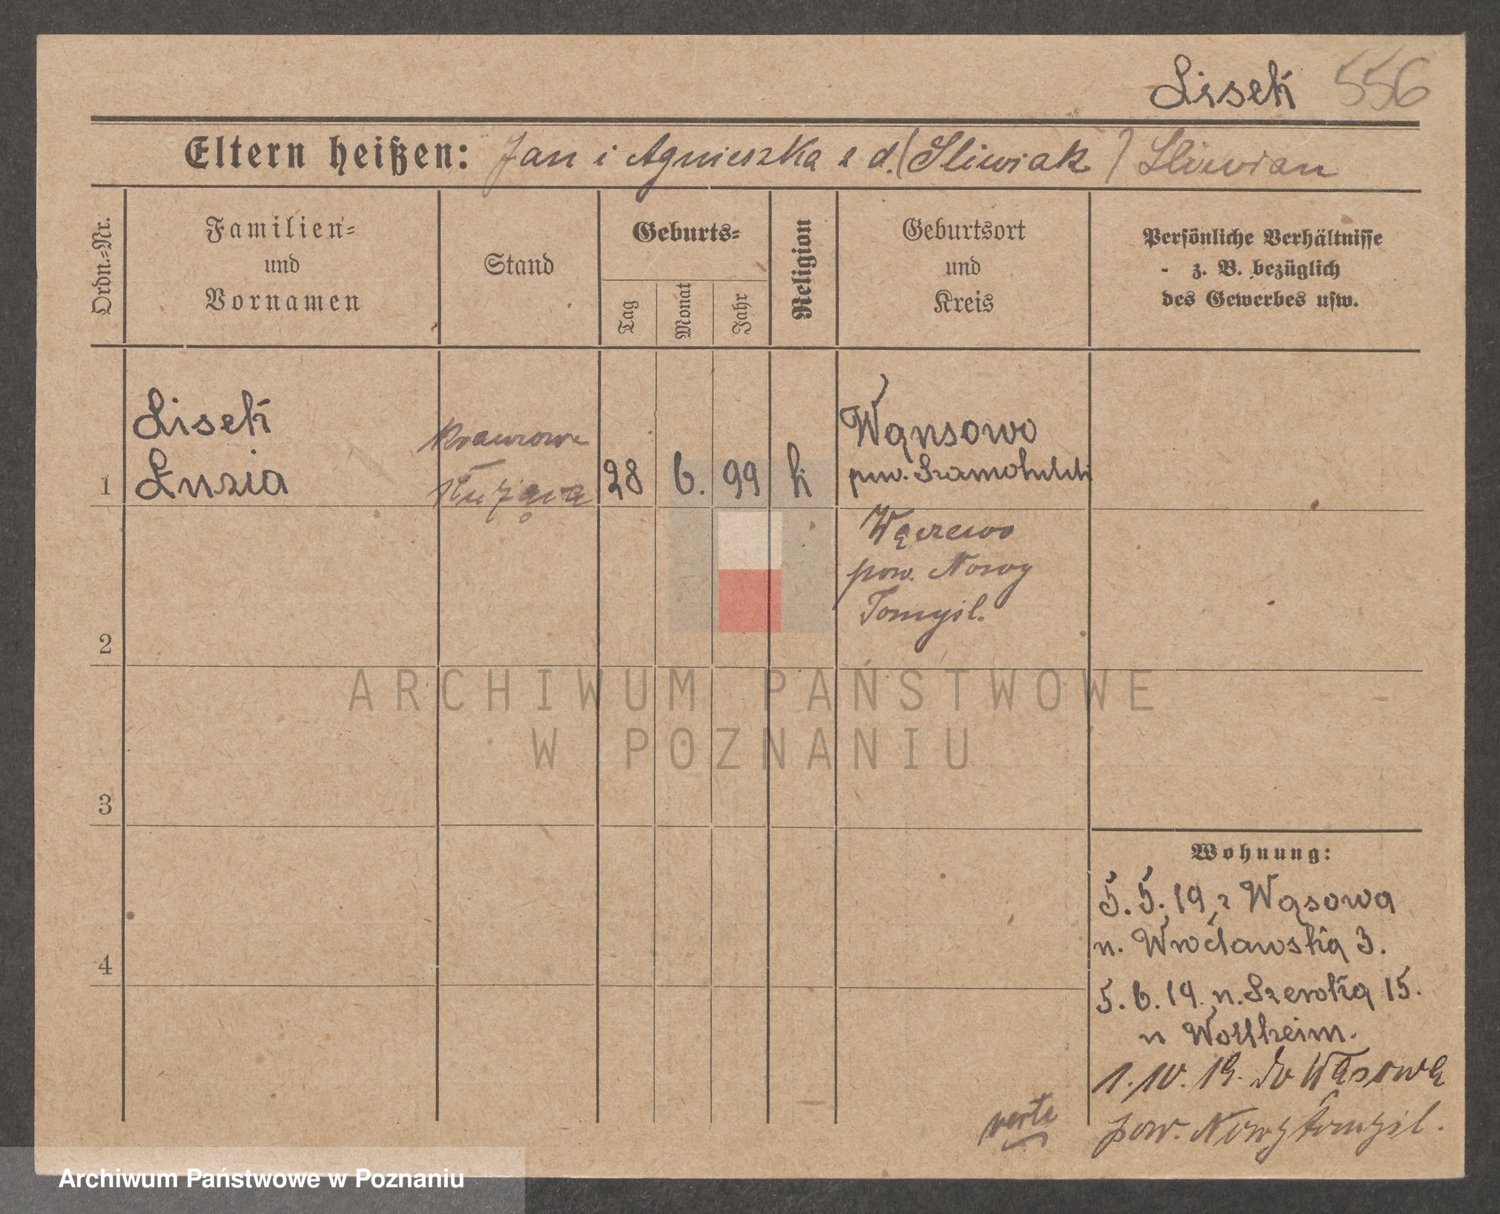 Lisek 556
Eltern heißen: Jan i Agnieszka z d. (Sliwiak) Sliwian
Ordn.-Nr.
Familien- und Vornamen
Stand
Geburts-
Tag
Monat
Jahr
Religion
Geburtsort und Kreis
Persönliche Verhältnisse
z. B. bezüglich
des Gewerbes usw.
1
Lisek
Luzia
służąca
28 6. 99 k
Wąnsowo
pow. Szamotulski
Wąsewo
pow. Nowy
Tomyśl.
2
3
4
Wohnung:
5. 5. 19 z Wąsowa
n. Wrocławską 3.
5. 6. 19. n. Szeroką 15.
n Wollheim.
1. 10. 19. do Wąsowa
pow. Nowy Tomyśl.
verte
ARCHIWUM PAŃSTWOWE
W POZNANIU
Archiwum Państwowe w Poznaniu